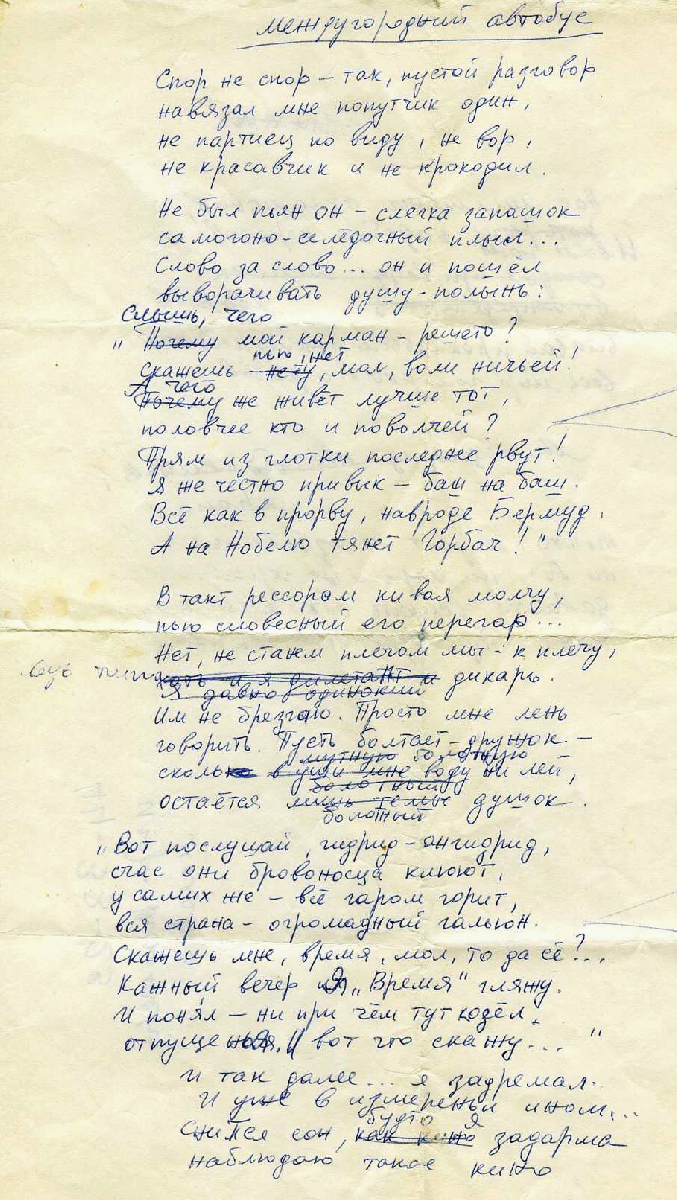 междугородний автобус
Спор не спор – так, пустой разговор
навязал мне попутчик один,
не партиец по виду, не вор,
не красавчик и не крокодил.
Не был пьян он – слегка запашок
самогоно-селёдочный плыл...
Слово за слово... он и пошёл
выворачивать душу-полынь:
Слышь, чего
„ Почему мой карман – решето?
пью, нет
Скажешь – нету, мол, воли ничьей!
А чего
Почему же живёт лучше тот,
половчее кто и поволчей?
Прям из глотки последнее рвут!
Я же честно привык – баш на баш.
Всё как в прорву, навроде Бермуд,
А на Нобелю тянет Горбач!"
В такт рессорам кивая молчу,
пью словесный его перегар...
Нет, не станем плечом мы – к плечу,
хоть и я дилетант и дикарь.
Я давно одинокий
Им не брезгаю. Просто мне лень
говорить. Пусть болтает – дружок –
мутную болотную
сколько в уши мне воду ни лей,
болотный
остаётся лишь темы душок.
болотный
„Вот послушай, гидрид-ангидрид,
счас они бровоносца клюют,
у самих же – всё гаром горит,
вся страна – огромадный гальюн.
Скажешь мне, время, мол, то да сё?...
Кажный вечер я „Время" гляжу.
И понял – ни при чём тут козёл
отпущения. И вот что скажу... "
И так далее... я задремал.
И уже в измереньи ином...
будто я
Снился сон, как кино задарма
наблюдаю такое кино